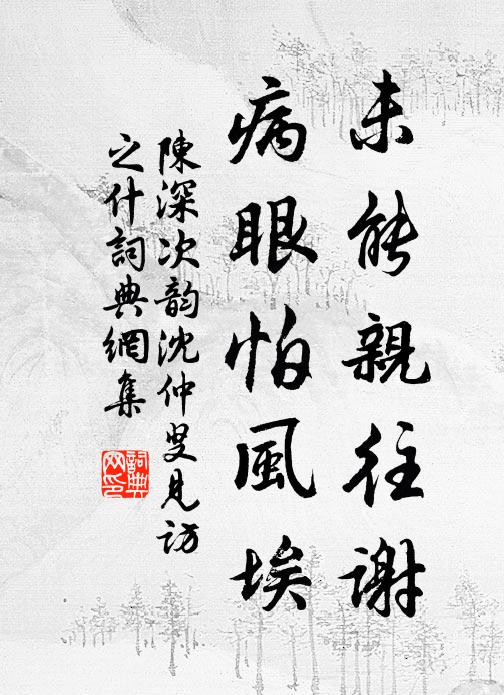 未能親往谢
病眼怕風埃
陳深次韵沈仲叟見訪
之什詞典網集
詞典网印